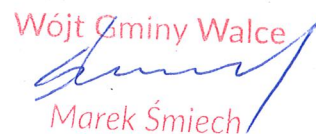 Wójt Gminy Walce
Marek Śmiech